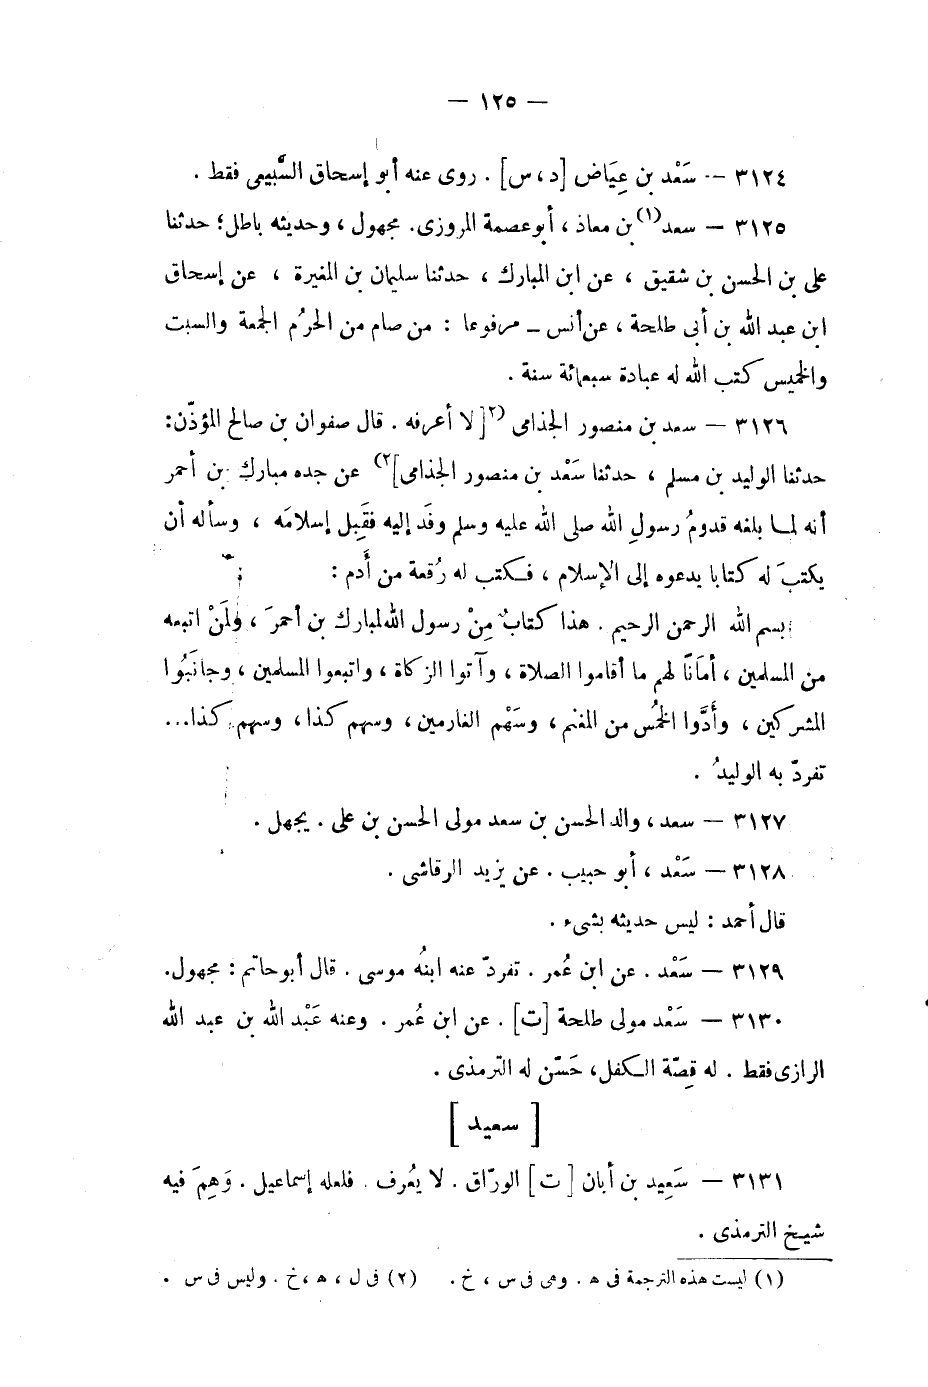 — ١٢٥ —
٣١٢٤ — سَعْد بن عِيَاض [د، س] . روى عنه أبو إسحاق السَّبيعى فقط .
٣١٢٥ — سعد(١) بن معاذ ، أبو عصمة المروزى. مجهول ، وحديثه باطل؛ حدثنا
على بن الحسن بن شقيق ، عن ابن المبارك ، حدثنا سليمان بن المغيرة ، عن إسحاق
ابن عبد الله بن أبى طلحة ، عن أنس ــ مرفوعا : من صام من الحرُم الجمعة والسبت
والخميس كتب الله له عبادة سبعمائة سنة .
٣١٢٦ — سعد بن منصور الجذامى (٢[ لا أعرفه . قال صفوان بن صالح المؤذّن:
حدثنا الوليد بن مسلم ، حدثنا سَعْد بن منصور الجذامى]٢) عن جده مبارك بن أحمر
أنه لما بلغه قدومُ رسولِ الله صلى الله عليه وسلم وفَد إليه فقَبِل إسلامَه ، وسأله أن
يكتبَ له كتابا يدعوه إلى الإسلام ، فكتب له رُقعة من أَدم :
بسم الله الرحمن الرحيم . هذا كتابٌ مِنْ رسول الله لمبارك بن أحمرَ ، ولمَنْ اتبعه
من المسلمين ، أمَانًا لهم ما أقاموا الصلاة ، وآتوا الزكاة ، واتبعوا المسلمين ، وجانَبُوا
المشركين ، وأَدَّوا الخمُس من المغنم ، وسَهْم الغارمين ، وسهم كذا ، وسهم كذا...
تفردّ به الوليدُ .
٣١٢٧ — سعد ، والد الحسن بن سعد مولى الحسن بن على . يجهل .
٣١٢٨ — سَعْد ، أبو حبيب . عن يزيد الرقاشى .
قال أحمد : ليس حديثه بشىء .
٣١٢٩ — سَعْد . عن ابن عُمر . تفردّ عنه ابنُه موسى . قال أبو حاتم : مجهول.
٣١٣٠ — سَعْد مولى طلحة [ت] . عن ابن عُمر . وعنه عَبْد الله بن عبد الله
الرازى فقط . له قِصّة الكفل، حَسّن له الترمذى .
[ سعيد ]
٣١٣١ — سَعِيد بن أبان [ ت ] الورّاق . لا يُعرف . فلعله إسماعيل . وَهِمَ فيه
شيخ الترمذى .
(١) ليست هذه الترجمة فى ه . وهى فى س ، خ . (٢) فى ل ، ه ، خ . وليس فى س .